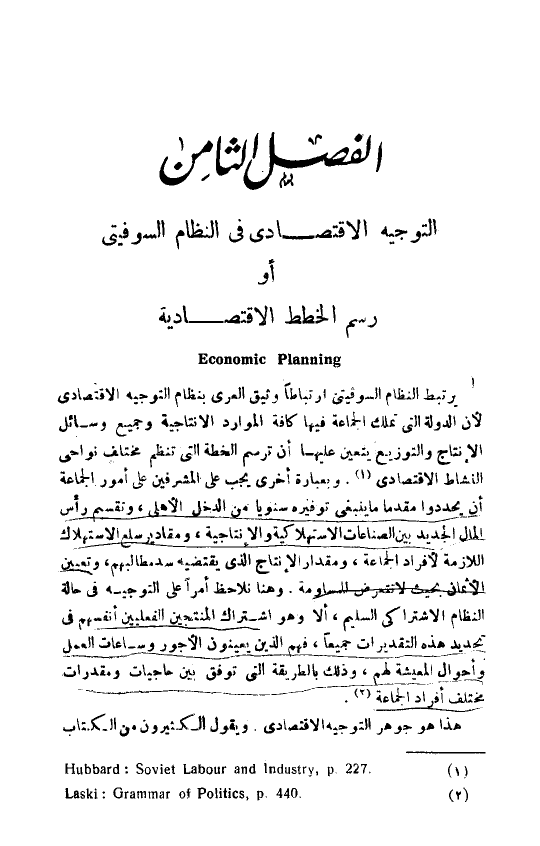 الفصل الثامن
التوجيه الاقتصـــادى فى النظام السوفيتى
أو
رسم الخطط الاقتصـــادية
Economic Planning
يرتبط النظام السوفيتى ارتباطاً وثيق العرى بنظام التوجيه الاقتصادى
لأن الدولة التى تملك الجماعة فيها كافة الموارد الانتاجية وجميع وسـائل
الإنتاج والتوزيع يتعين عليهـا أن ترسم الخطة التى تنظم مختلف نواحى
النشاط الاقتصادى (١) . وبعبارة أخرى يجب على المشرفين على أمور الجماعة
أن يحددوا مقدما ماينبغى توفيره سنويا من الدخل الأهلى ، وتقسيم رأس
المال الجديد بين الصناعات الاستهلاكية والإنتاجية ، ومقادير سلع الاستهلاك
اللازمة لأفراد الجماعة ، ومقدار الإنتاج الذى يقتضيه سد مطالبهم، وتعيين
الأثمان بحيث لا تتعرض للمساومة . وهنا نلاحظ أمراً على التوجيـه فى حالة
النظام الاشتراكى السليم ، ألا وهو اشـتراك المنتجين الفعليين أنفسهم فى
تحديد هذه التقديرات جميعاً ، فهم الذين يعينون الأجور وسـاعات العمل
وأحوال المعيشة لهم ، وذلك بالطريقة التى توفق بين حاجيات ومقدرات
مختلف أفراد الجماعة (٢) .
هذا هو جوهر التوجيه الاقتصادى . ويقول الكثيرون من الكتاب
Hubbard : Soviet Labour and Industry, p. 227. (١)
Laski : Grammar of Politics, p. 440. (٢)